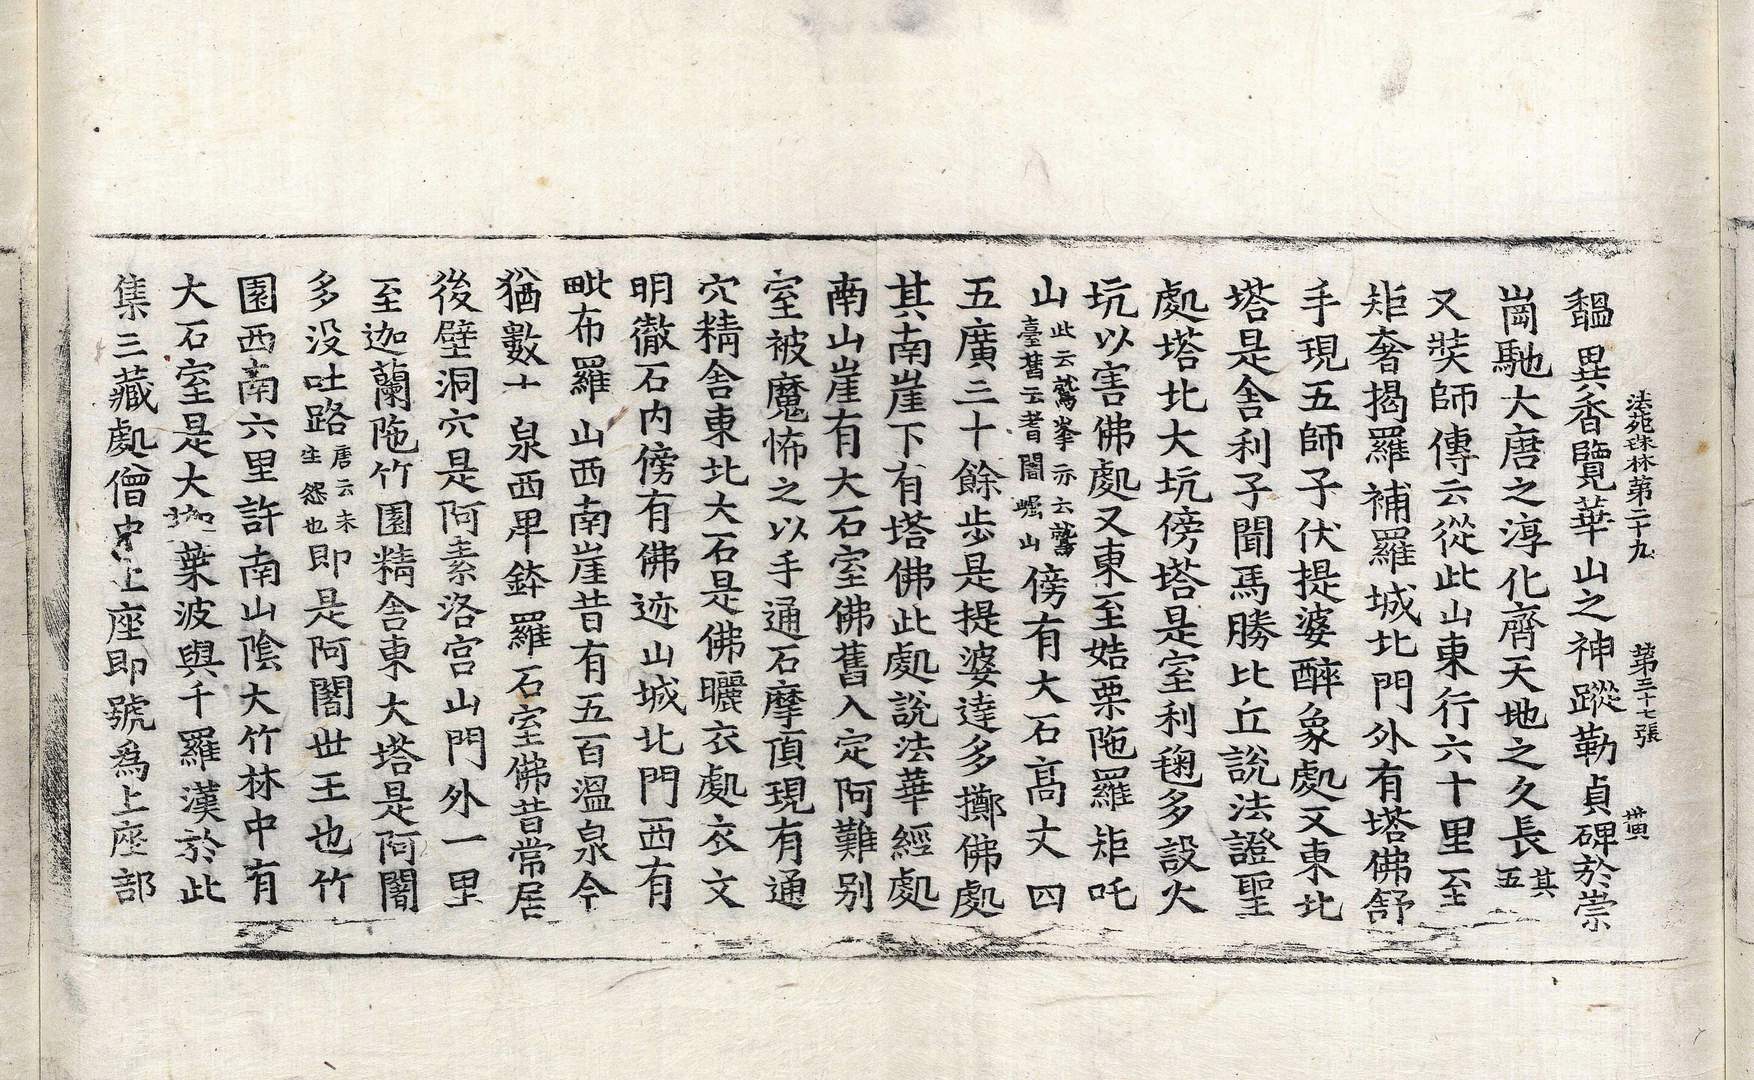 法苑珠林第二十九　第三十七張　黄
馧異香覽華山之神蹤勒貞碑於崇
崗馳大唐之淳化齊天地之久長其五
又奘師傳云從此山東行六十里至
矩奢揭羅補羅城北門外有塔佛舒
手現五師子伏提婆醉象處又東北
塔是舍利子聞馬勝比丘說法證聖
處塔北大坑傍塔是室利毱多設火
坑以害佛處又東至姞栗陁羅矩吒
山此云鷲峯亦云鷲臺舊云耆闍崛山傍有大石高丈四
五廣三十餘步是提婆達多擲佛處
其南崖下有塔佛此處說法華經處
南山崖有大石室佛舊入定阿難别
室被魔怖之以手通石摩頂現有通
穴精舍東北大石是佛曬衣處衣文
明徹石内傍有佛迹山城北門西有
毗布羅山西南崖昔有五百溫泉今
猶數十泉西卑鉢羅石室佛昔常居
後壁洞穴是阿素洛宫山門外一里
至迦蘭陁竹園精舍東大塔是阿闍
多没吐路唐云未生怨也即是阿闍世王也竹
園西南六里許南山陰大竹林中有
大石室是大迦葉波與千羅漢於此
集三藏處僧中上座即號爲上座部